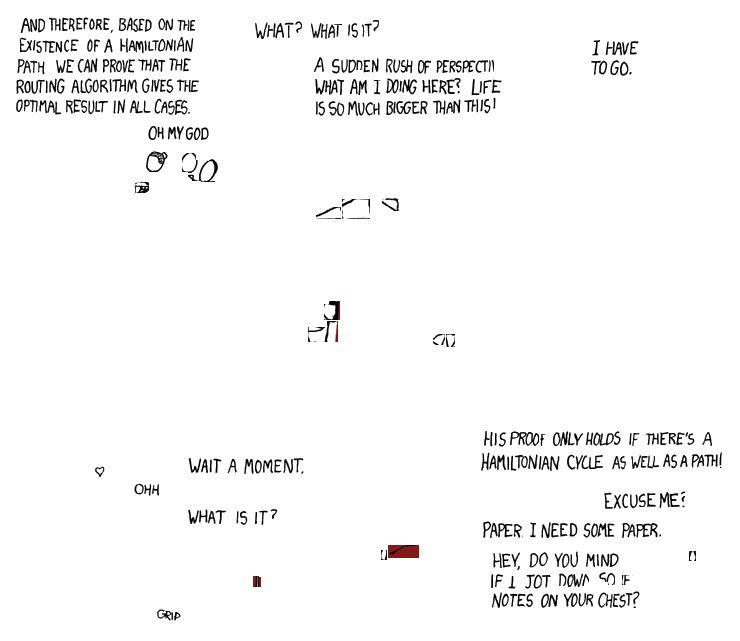 AND THEREFORE, BASED ON THE
EXISTENCE OF A HAMILTONIAN
PATH WE CAN PROVE THAT THE
ROUTING ALGORITHM GIVES THE
OPTIMAL RESULT IN ALL CASES.
OH MY GOD
WHAT? WHAT IS IT?
A SUDDEN RUSH OF
WHAT AM I DOING HERE? LIFE
IS SO MUCH BIGGER THAN THIS!
I HAVE
TO GO.
OHH
WAIT A MOMENT.
WHAT IS IT?
GRIP
HIS PROOF ONLY HOLDS IF THERE'S A
HAMILTONIAN CYCLE AS WELL AS A PATH!
EXCUSE ME?
PAPER. I NEED SOME PAPER.
HEY, DO YOU MIND
IF I JOT DOWN
NOTES ON YOUR CHEST?